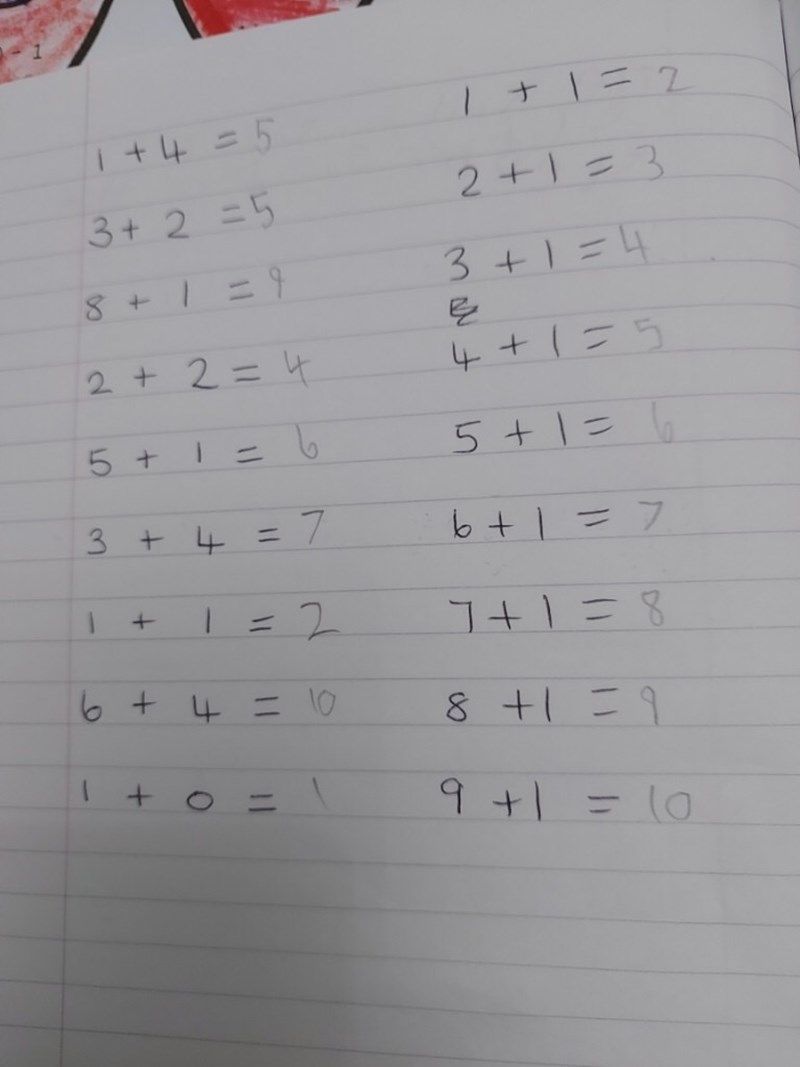 - 1
1 + 4 = 5
3 + 2 = 5
8 + 1 = 9
2 + 2 = 4
5 + 1 = 6
3 + 4 = 7
1 + 1 = 2
6 + 4 = 10
1 + 0 = 1
1 + 1 = 2
2 + 1 = 3
3 + 1 = 4
4 + 1 = 5
5 + 1 = 6
6 + 1 = 7
7 + 1 = 8
8 + 1 = 9
9 + 1 = 10